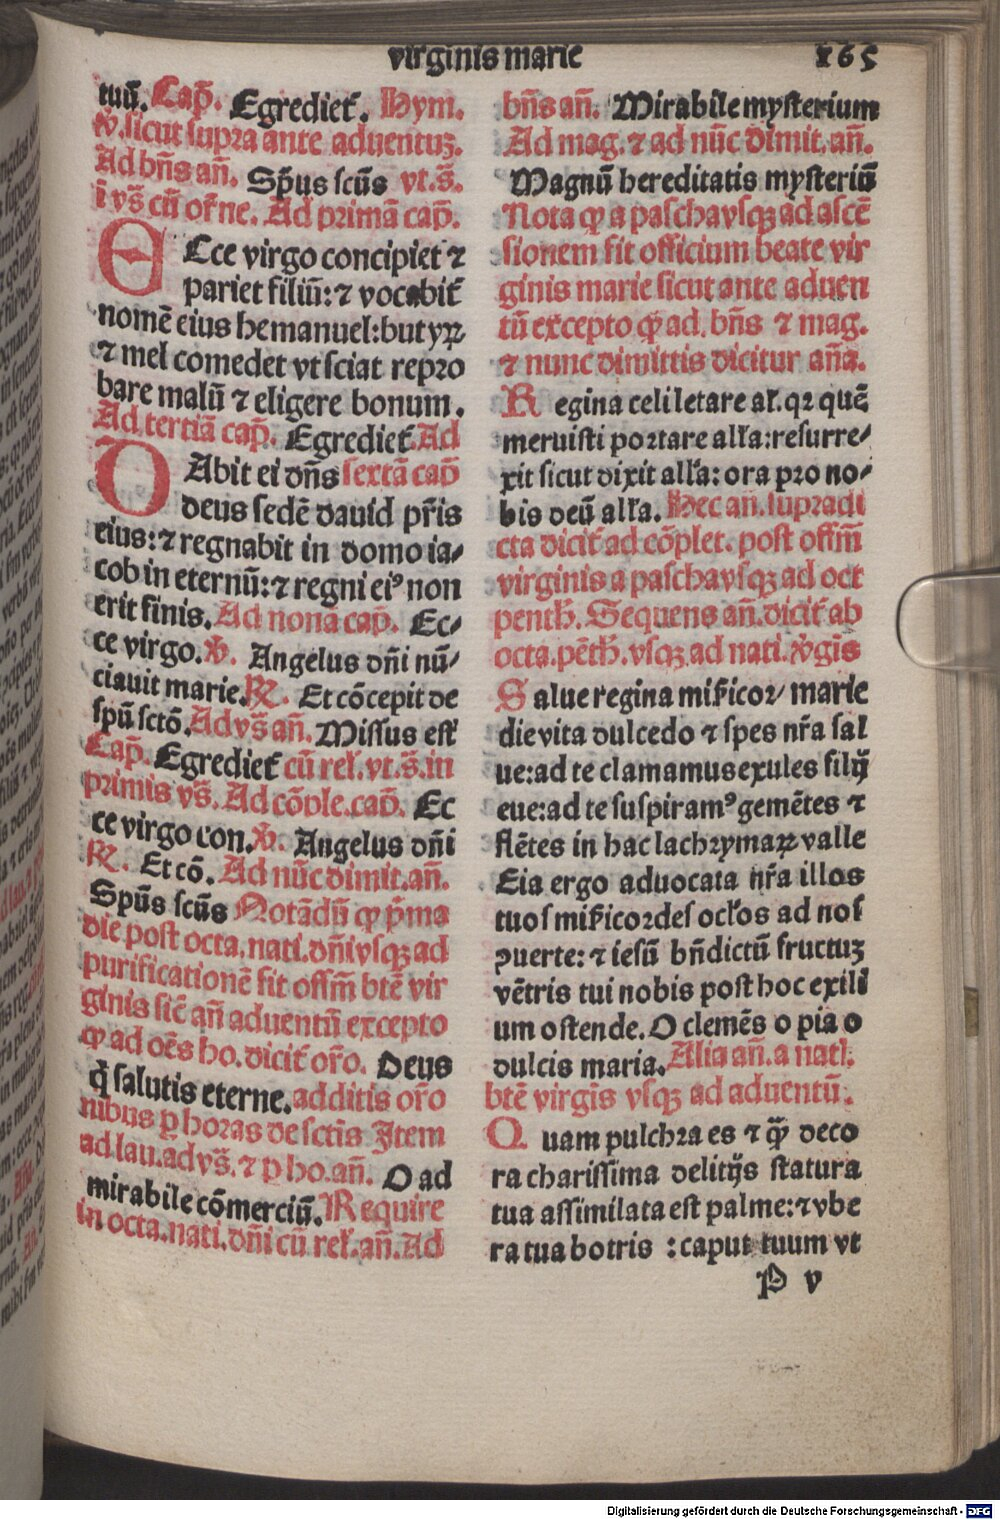 virginis marie 165
tuū. Cap̄. Egrediet᷑. Hym.
℣. sicut supra ante aduentuꝫ.
Ad bn̄s an̄. Sp̄us scūs vt. s̄.
ī vs̄ cū or̄ne. Ad primā cap̄.
ECce virgo concipiet ⁊
pariet filiū: ⁊ vocabit᷑
nomē eius hemanuel: butyꝝ
⁊ mel comedet vt sciat repro
bare malū ⁊ eligere bonum.
Ad tertiā cap̄. Egrediet᷑. Ad
DAbit ei dn̄s sextā cap̄
deus sedē dauid pr̄is
eius: ⁊ regnabit in domo ia⸗
cob in eternū: ⁊ regni eiꝰ non
erit finis. Ad nonā cap̄. Ec⸗
ce virgo. ℣. Angelus dn̄i nū⸗
ciauit marie. ℟. Et cōcepit de
spū sctō. Ad vs̄ an̄. Missus est
Cap̄. Egrediet᷑ cū rel̄. vt. s̄. in
primis vs̄. Ad cōple. cap̄. Ec
ce virgo con. ℣. Angelus dn̄i
℟. Et cō. Ad nūc dimit. an̄.
Spūs scūs Notādū ꝙ p̄ma
die post octa. nati. dn̄i vsqꝫ ad
purificationē fit offm̄ btē vir
ginis sic̄ an̄ aduentū excepto
ꝙ ad oēs ho. dicit᷑ or̄o. Deus
q̄ salutis eterne. additis or̄o
nibus ꝑ horas de sctīs Item
ad lau. ad vs̄. ⁊ p ho. an̄. O ad
mirabile cōmerciū. Require
in octa. nati. dn̄i cū rel̄. an̄. Ad
bn̄s an̄. Mirabile mysterium
Ad mag. ⁊ ad nūc dimit. an̄.
Magnū hereditatis mysteriū
Nota ꝙ a pascha vsqꝫ ad ascē
sionem fit officium beate vir
ginis marie sicut ante aduen
tū excepto ꝙ ad. bn̄s ⁊ mag.
⁊ nunc dimittis dicitur an̄a.
Regina celi letare al̄. qꝛ quē
meruisti portare all̄a: resurre⸗
xit sicut dixit all̄a: ora pro no⸗
bis deū all̄a. Hec an̄. supradi
cta dicit᷑ ad cōplet. post offm̄
virginis a pascha vsqꝫ ad oct
penth̄. Sequens an̄. dicit᷑ ab
octa. pēth̄. vsqꝫ ad nati. v̄gīs
Salue regina mis̄icor⸗ marie
die vita dulcedo ⁊ spes nr̄a sal
ue: ad te clamamus exules filij
eue: ad te suspiramꝰ gemētes ⁊
flētes in hac lachrymaꝝ valle
Eia ergo aduocata nr̄a illos
tuos mis̄icordes ocl̄os ad nos
ꝯuerte: ⁊ iesū bn̄dictū fructuꝫ
vētris tui nobis post hoc exili
um ostende. O clemēs o pia o
dulcis maria. Alia an̄. a nati.
btē virgīs vsqꝫ ad aduentū.
Quam pulchra es ⁊ q̄ꝫ deco
ra charissima delitijs statura
tua assimilata est palme: ⁊ vbe
ra tua botris : caput tuum vt
P v
Digitalisierung gefördert durch die Deutsche Forschungsgemeinschaft - DFG